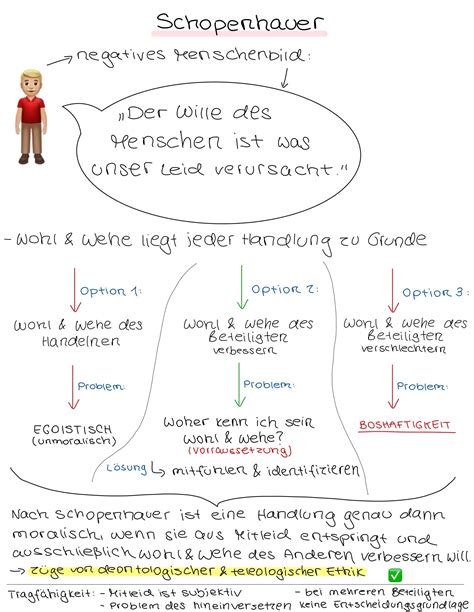 Schopenhauer
→ negatives Menschenbild:
„Der Wille des
Menschen ist was
unser Leid verursacht."
- Wohl & Wehe liegt jeder Handlung zu Grunde
Option 1:
Option 2:
Option 3:
Wohl & Wehe des
Handelnen
Wohl & Wehe des
Beteiligten
verbessern
Wohl & Wehe des
Beteiligten
verschlechtern
Problem:
Problem:
Problem:
EGOISTISCH
(unmoralisch)
Woher kenn ich sein
Wohl & Wehe?
(Vorraussetzung)
BOSHAFTIGKEIT
Lösung ↳ mitfühlen & identifizieren
Nach Schopenhauer ist eine Handlung genau dann
moralisch, wenn sie aus Mitleid entspringt und
ausschließlich Wohl & Wehe des Anderen verbessern will.
→ Züge von deontologischer & teleologischer Ethik
Tragfähigkeit: - Mitleid ist subjektiv
- Problem des hineinversetzen
- bei mehreren Beteiligten
keine Entscheidungsgrundlage